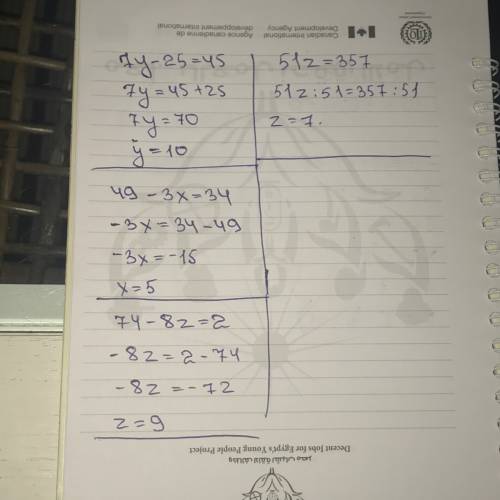 7y-25=45
7y=45+25
7y=70
y=10
51z=357
51z:51=357:51
z=7.
49-3x=34
-3x=34-49
-3x=-15
x=5
74-8z=2
-8z=2-74
-8z=-72
z=9
Canadian International Development Agency
Agence canadienne de développement international
Decent Jobs for Egypt's Young People Project